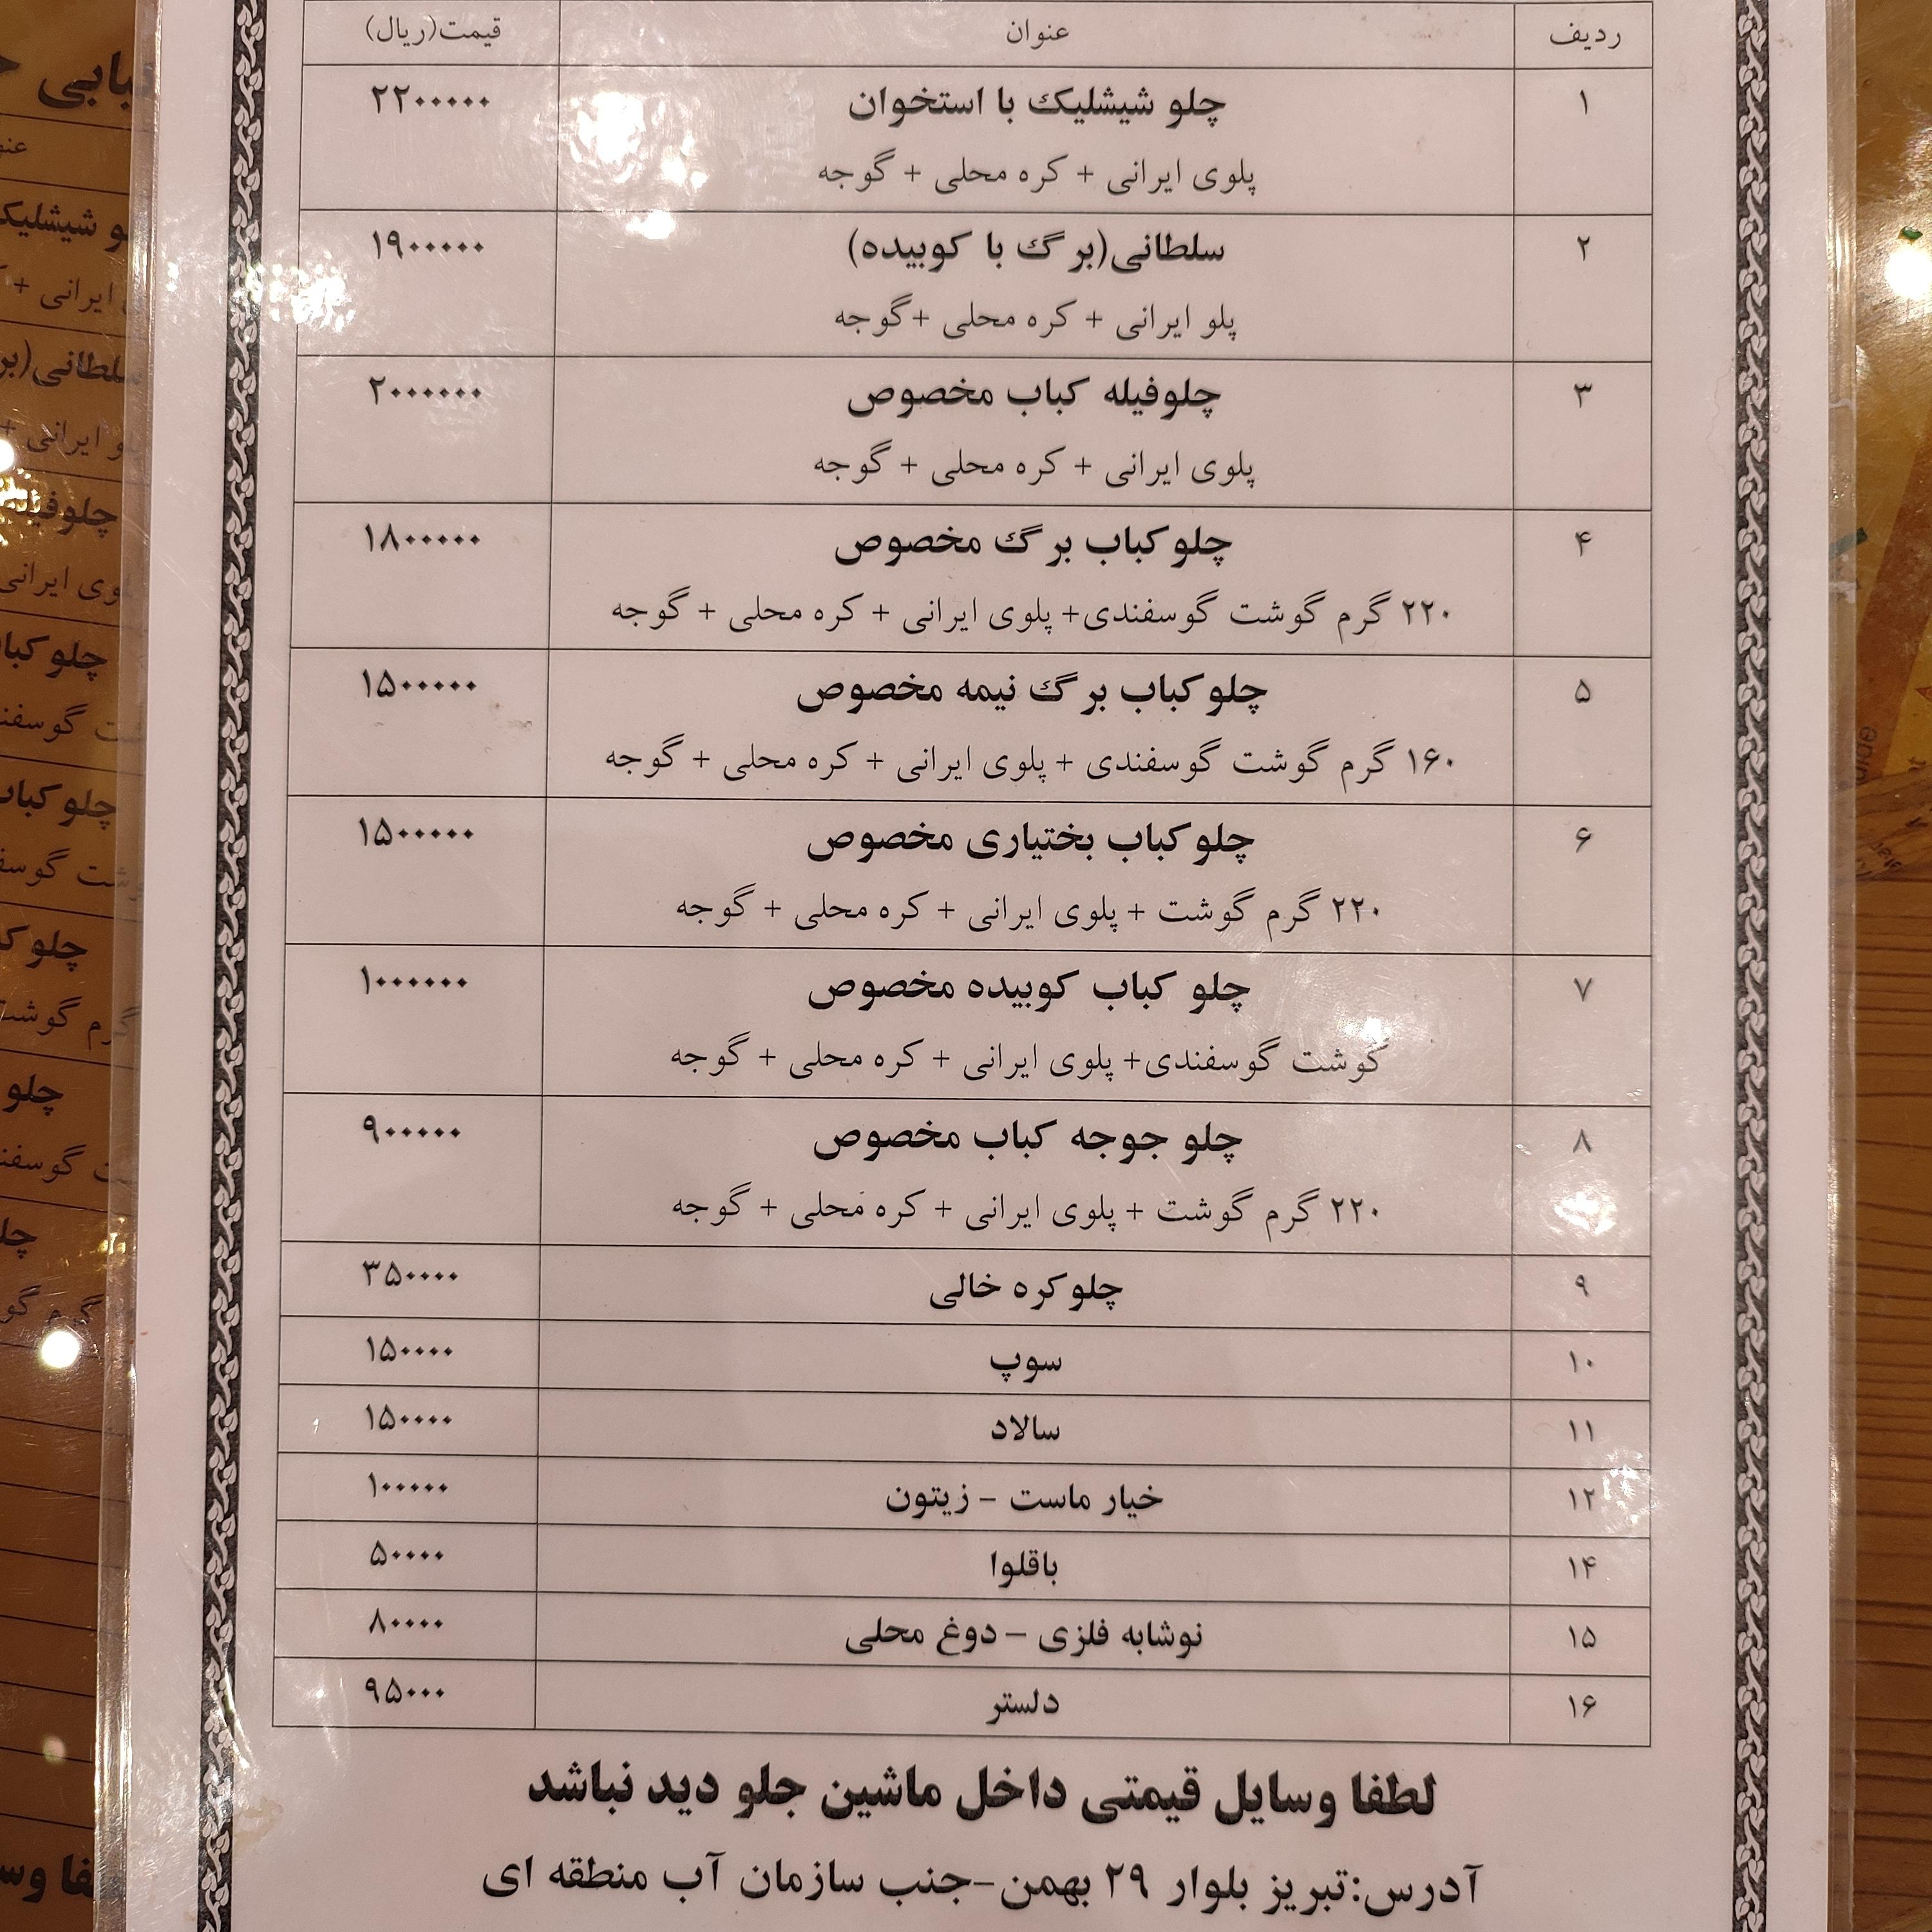 ردیف عنوان قیمت(ریال)
۱ چلو شیشلیک با استخوان ۲۲۰۰۰۰۰
پلوی ایرانی + کره محلی + گوجه
۲ سلطانی(برگ با کوبیده) ۱۹۰۰۰۰۰
پلو ایرانی + کره محلی +گوجه
۳ چلوفیله کباب مخصوص ۲۰۰۰۰۰۰
پلوی ایرانی + کره محلی + گوجه
۴ چلوکباب برگ مخصوص ۱۸۰۰۰۰۰
۲۲۰ گرم گوشت گوسفندی+ پلوی ایرانی + کره محلی + گوجه
۵ چلوکباب برگ نیمه مخصوص ۱۵۰۰۰۰۰
۱۶۰ گرم گوشت گوسفندی + پلوی ایرانی + کره محلی + گوجه
۶ چلوکباب بختیاری مخصوص ۱۵۰۰۰۰۰
۲۲۰ گرم گوشت + پلوی ایرانی + کره محلی + گوجه
۷ چلو کباب کوبیده مخصوص ۱۰۰۰۰۰۰
گوشت گوسفندی+ پلوی ایرانی + کره محلی + گوجه
۸ چلو جوجه کباب مخصوص ۹۰۰۰۰۰
۲۲۰ گرم گوشت + پلوی ایرانی + کره محلی + گوجه
۹ چلوکره خالی ۳۵۰۰۰۰
۱۰ سوپ ۱۵۰۰۰۰
۱۱ سالاد ۱۵۰۰۰۰
۱۲ خیار ماست - زیتون ۱۰۰۰۰۰
۱۴ باقلوا ۵۰۰۰۰
۱۵ نوشابه فلزی – دوغ محلی ۸۰۰۰۰
۱۶ دلستر ۹۵۰۰۰
لطفا وسایل قیمتی داخل ماشین جلو دید نباشد
آدرس:تبریز بلوار ۲۹ بهمن-جنب سازمان آب منطقه ای